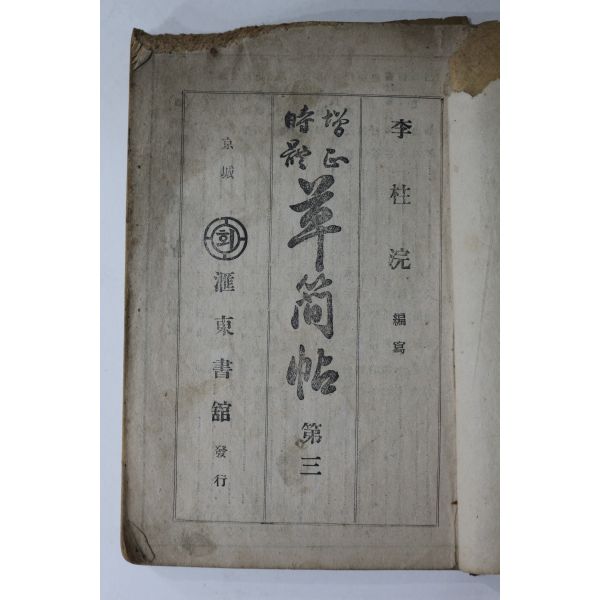 李柱浣 編寫
增正
時體
草簡帖 第三
京城 회 滙東書舘 發行